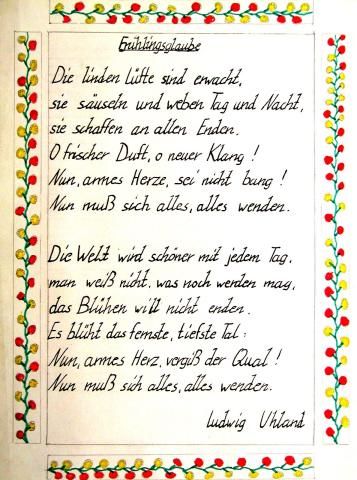 Frühlingsglaube
Die linden Lüfte sind erwacht,
sie säuseln und weben Tag und Nacht,
sie schaffen an allen Enden.
O frischer Duft, o neuer Klang!
Nun, armes Herze, sei nicht bang!
Nun muß sich alles, alles wenden.
Die Welt wird schöner mit jedem Tag,
man weiß nicht, was noch werden mag,
das Blühen will nicht enden.
Es blüht das fernste, tiefste Tal:
Nun, armes Herz, vergiß der Qual!
Nun muß sich alles, alles wenden.
Ludwig Uhland